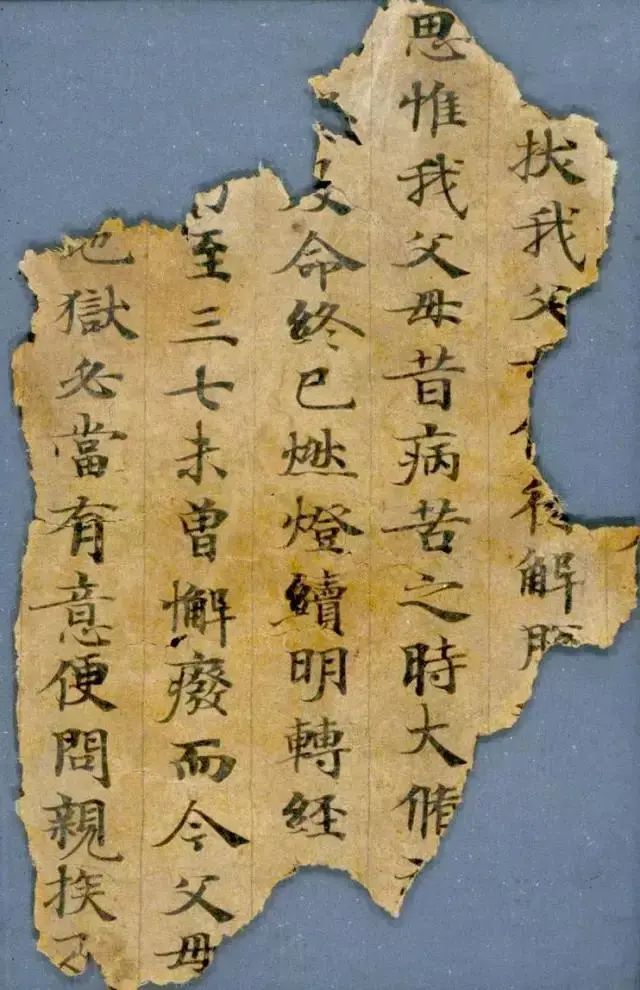 拔我父得解脫
思惟我父母昔病苦之時大脩
及命終已燃燈續明轉経
至三七未曾懈癈而今父母
地獄必當有意便問親挨